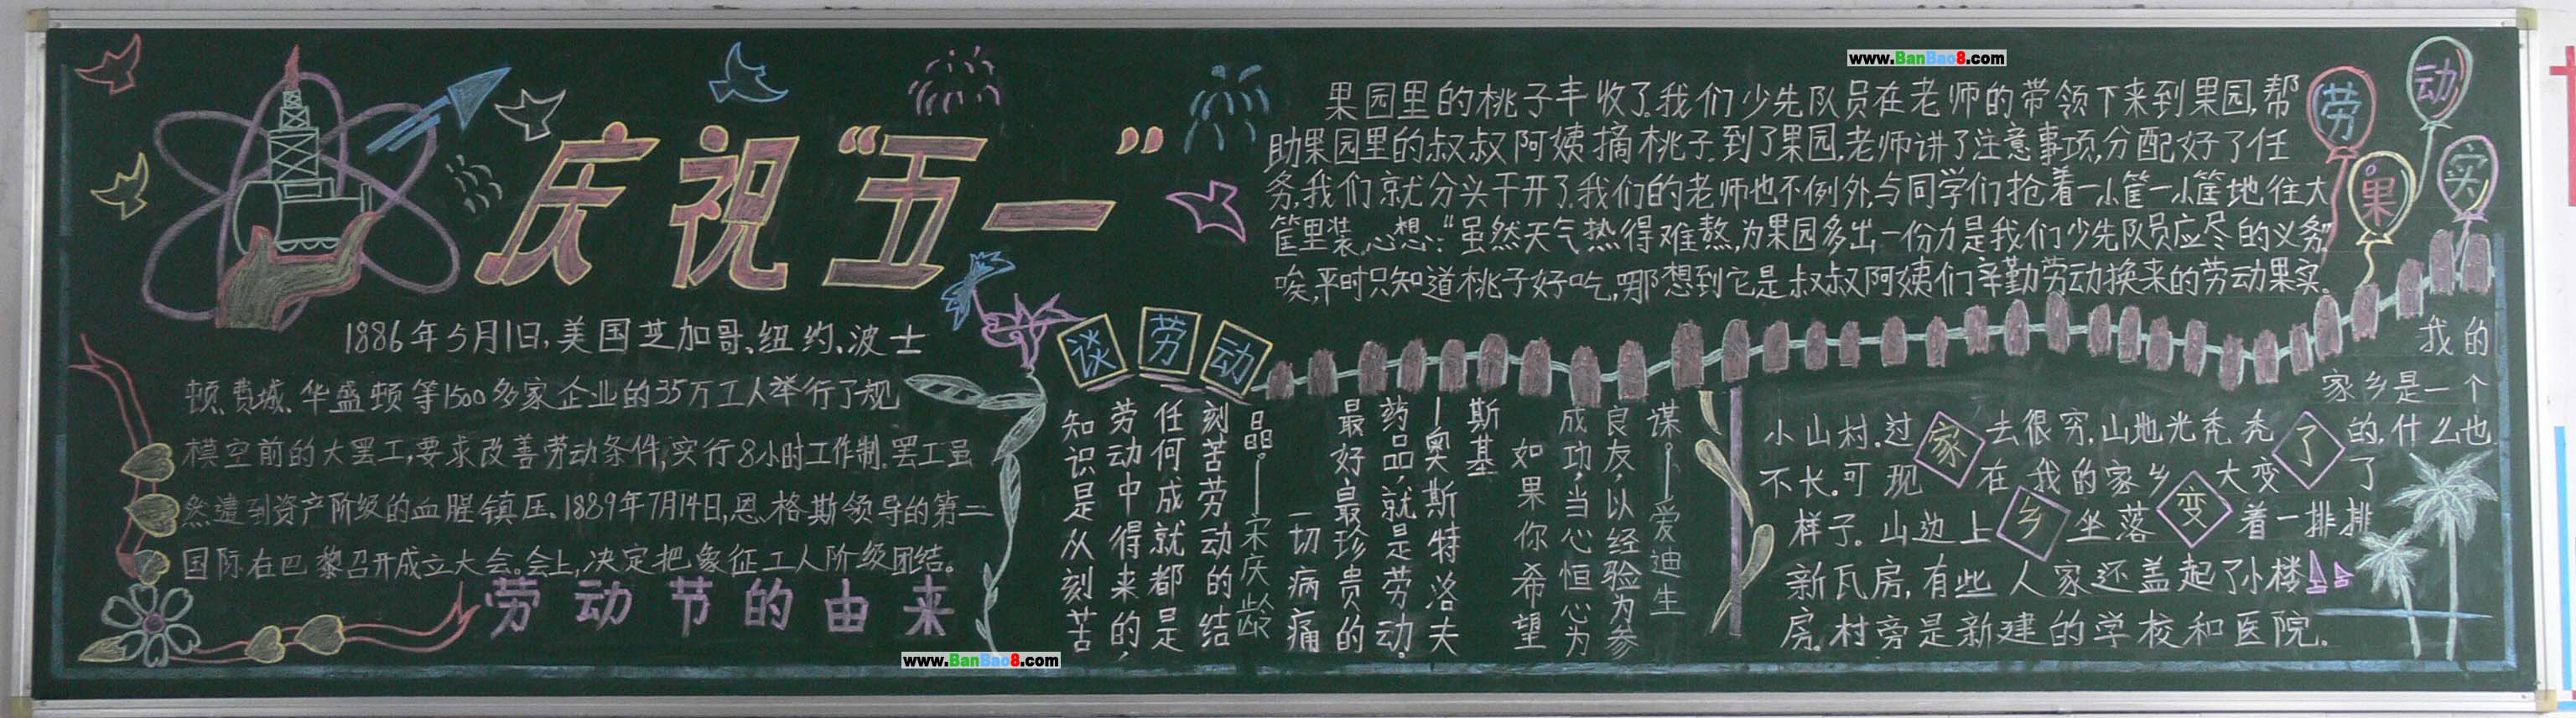 庆祝“五一”
1886年5月1日,美国芝加哥、纽约、波士
顿、费城、华盛顿等1500多家企业的35万工人举行了规
模空前的大罢工,要求改善劳动条件,实行8小时工作制.罢工虽
然遭到资产阶级的血腥镇压.1889年7月14日,恩格斯领导的第二
国际在巴黎召开成立大会。会上,决定把象征工人阶级团结。
劳动节的由来
www.BanBao8.com
www.BanBao8.com
劳动果实
果园里的桃子丰收了.我们少先队员在老师的带领下来到果园,帮
助果园里的叔叔阿姨摘桃子.到了果园,老师讲了注意事项,分配好了任
务,我们就分头干开了.我们的老师也不例外,与同学们抢着一小筐一小筐地往大
筐里装.心想:“虽然天气热得难熬,为果园多出一份力是我们少先队员应尽的义务”
唉,平时只知道桃子好吃,哪想到它是叔叔阿姨们辛勤劳动换来的劳动果实.
谈劳动
知识是从刻苦
劳动中得来的,
任何成就都是
刻苦劳动的结
晶。——宋庆龄
一切病痛
最好最珍贵的
药品,就是劳动.
—奥斯特洛夫
斯基
如果你希望
成功,当心恒心为
良友,以经验为参
谋—爱迪生
家乡变了
我的
家乡是一个
小山村.过去很穷,山地光秃秃的,什么也
不长.可现在我的家乡大变了
样子.山边上坐落着一排排
新瓦房,有些人家还盖起了小楼
房.村旁是新建的学校和医院.